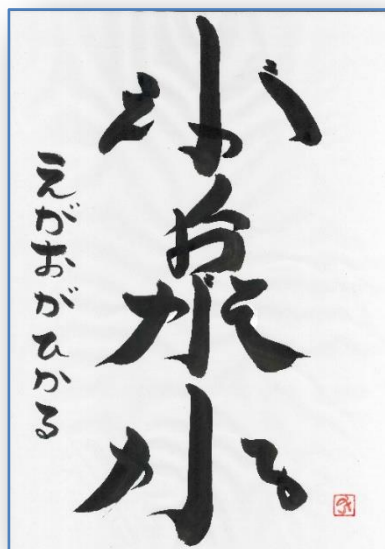 小泉小
えがおがひかる